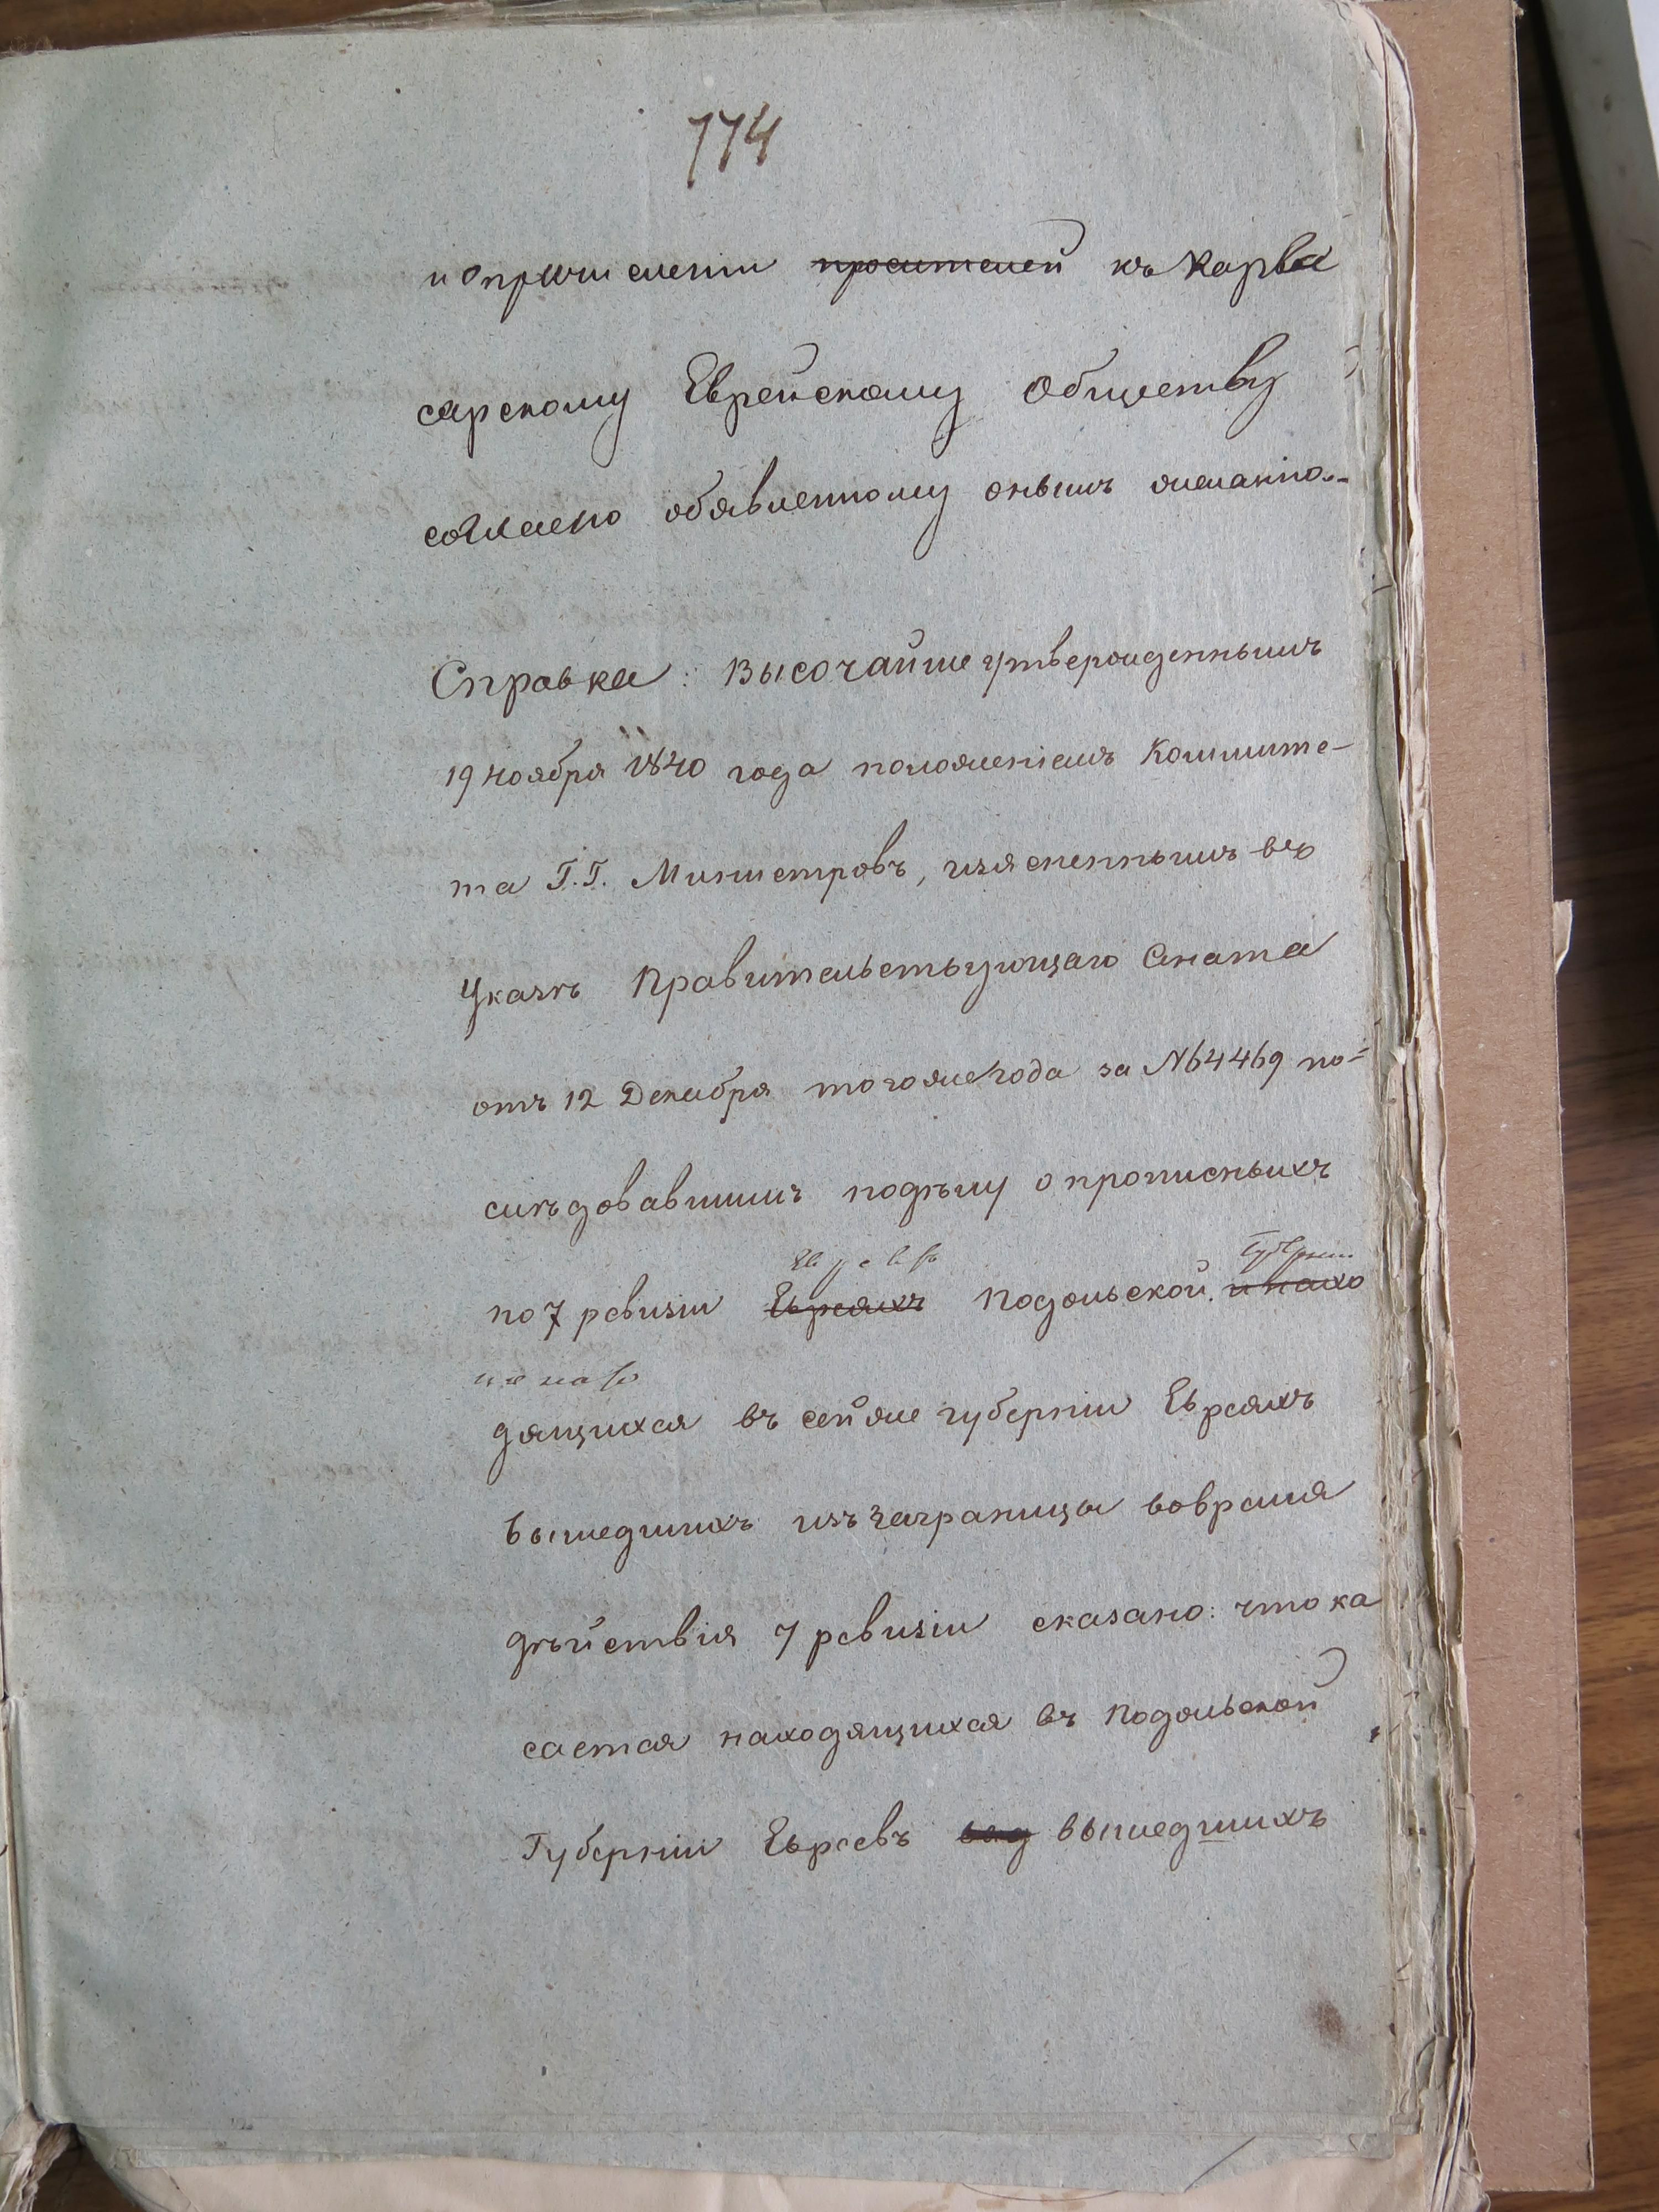 774
и опричислении просителей къ Карва
сарскому Еврейскому Обществу
согласно обявленному онымъ желанію.-
Справка: Высочайше утвержденнымъ
19 ноября 1840 года положеніемъ Коммите-
та Г.Г. Министровъ, изясненнымъ въ
Указѣ Правительствующаго Сената
отъ 12 Декабря тогоже года за № 64469 по-
слѣдовавшимъ подѣлу о прописныхъ
Евреяхъ Губерніи
по 7 ревизіи Евреяхъ Подольской. и нахо
и нахо
дящихся въ сейже губерніи Евреяхъ
вышедшихъ изъ Заграницы вовремя
дѣйствія 7 ревизіи сказано: что ка
сается находящихся въ Подольской
Губерніи Евреевъ вышедшихъ